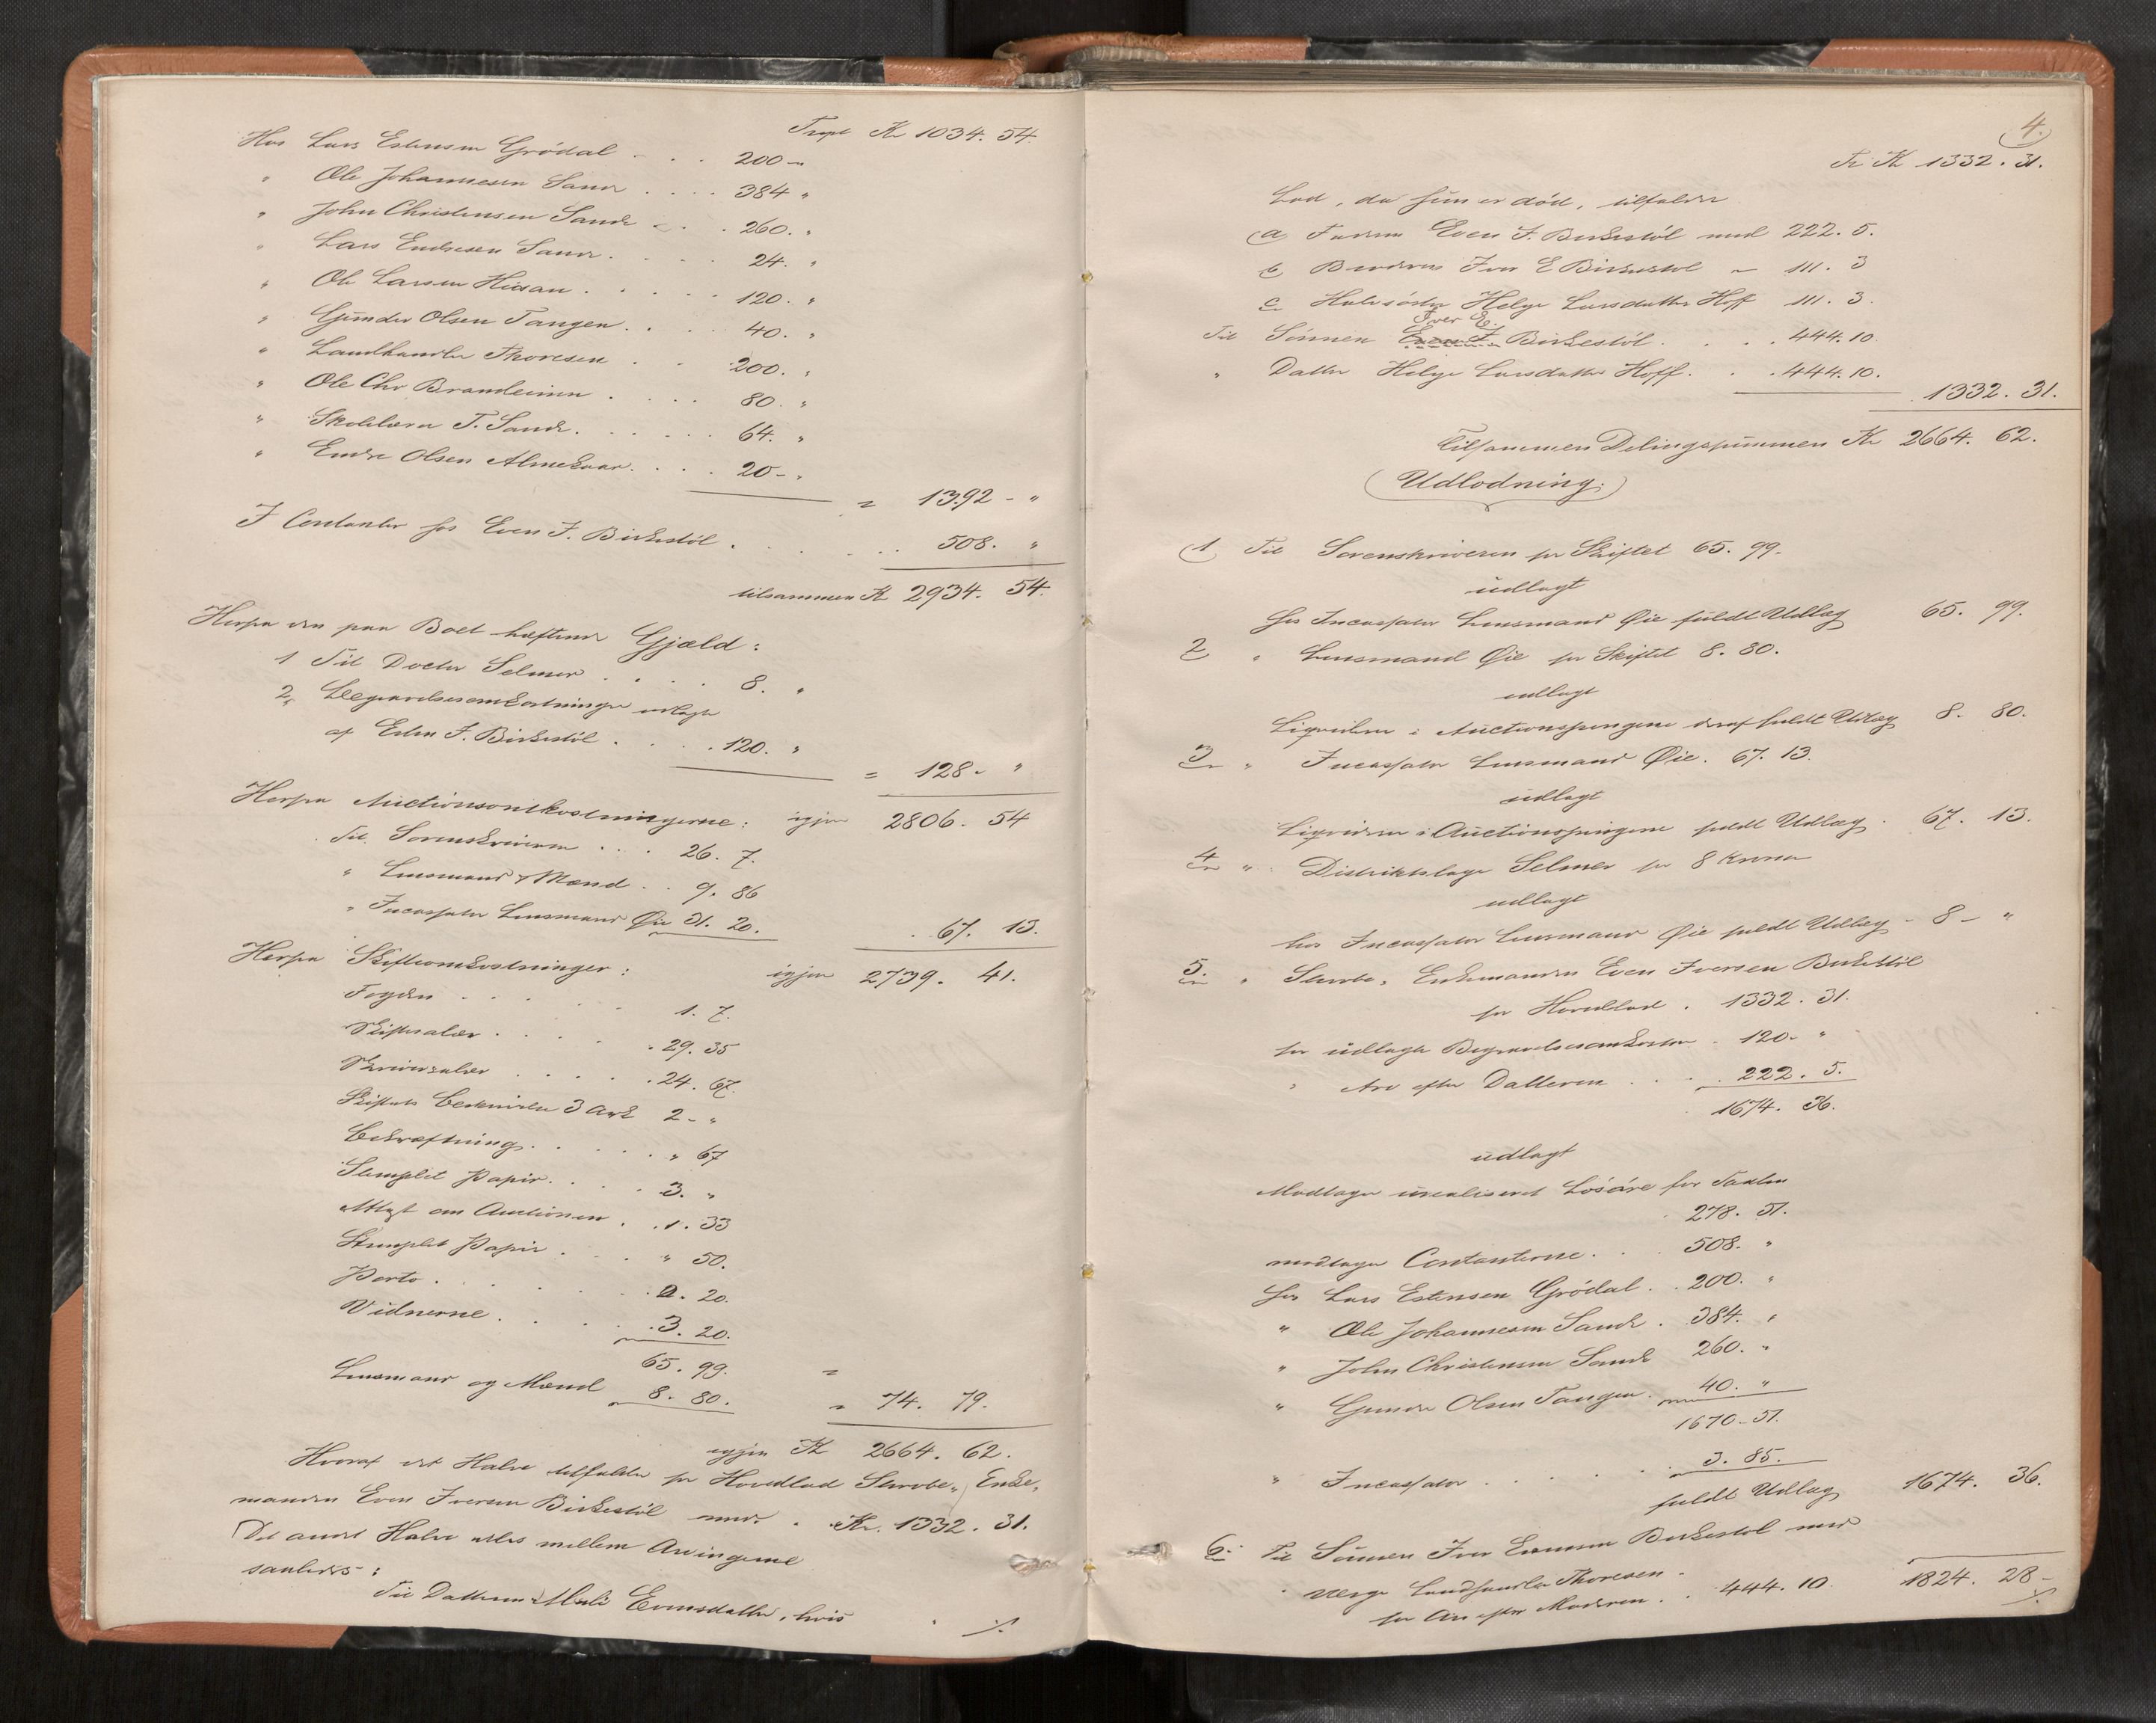 Trspt Kr 1034. 54.
Hos Lars Estensen Grödal . . . 200 –
" Ole Johannesen Sand . . . . 384 "
" John Christensen Sande . . . 260. "
" Lars Endresen Sand . . . . 24. "
" Ole Larsen . . . . 120. "
" Gunder Olsen Tangen . . . 40. "
" Landhandler Thoresen . . 200. "
" Ole Chr. Brandeimen . . . . 80. "
" Skolelærer T. Sande . . . . . 64. "
" Endre Olsen Almeskaar . . . . 20 – "
= 1392 – "
I Contanter hos Even I. Birkestöl . . . . . . . 508. "
tilsammen Kr 2934. 54.
Herfra den paa Boet hæftende Gjæld:
1 Til Doctor Selmer . . . . 8. "
2, Begravelsesomkostninger udlagt
af Even I. Birkestöl . . . . 120. "
= 128 – "
Herfra Auctionsomkostningerne: igjen 2806. 54
Til Sorenskriveren . . . 26. 7.
" Lensmand & Mænd . . 9. 86
" Incassator Lensmand Øie 31. 20.
. 67. 13.
Herfra Skifteomkostninger: igjen 2739. 41.
Fogden . . . . . 1. 7.
Skiftesalær . . . . . 29. 35
Skriversalær . . . . . 24. 67.
Skiftets Beskrivelse 3 Ark 2 – "
Bekræftning . . . . . " 67
Stemplet Papir . . . . 3. "
Attest om Auctionen . . 1. 33
Stemplet Papir . . . " 50.
Porto . . . . . " 20.
Vidnerne . . . . . 3. 20.
65. 99. =
Lensmand og Mænd 8. 80. = 74. 79.
igjen Kr 2664. 62.
Hvoraf det Halve tilfalder for Hovedlod Stervbo, Enke-
manden Even Iversen Birkestöl med . . Kr. 1332. 31.
Det andet Halve deles mellem Arvingerne
saaledes:
Til Datteren Mali Evensdatter, hvis
./.
4.
Tr Kr 1332. 31.
Lod, da hun er död, tilfalder
a Faderen Even I. Birkestöl med 222. 5.
b Broderen Iver E Birkestöl – 111. 3
c Halvsöster Helge Larsdatter Hoff 111. 3.
Iver E.
Til Sönnen Even I. Birkestöl . . . . 444. 10.
" Datter Helge Larsdatter Hoff . . . 444. 10.
1332. 31.
Tilsammen Delingssummen Kr 2664. 62.
Udlodning.
1 Til Sorenskriveren for Skiftet 65. 99.
udlagt
hos Incassator Lensmand Øie fuldt Udlæg 65. 99.
2 " Lensmand Øie for Skiftet 8. 80.
udlagt
Liqviderer i Auctionspengene deraf fuldt Udlæg 8. 80.
3 " Incassator Lensmand Øie. 67. 13.
udlagt
Liqviderer i Auctionspengene fuldt Udlæg . 67. 13.
4 " Distriktslæge Selmer for 8 Kroner
udlagt
hos Incassator Lensmand Øie fuldt Udlæg – 8 – "
5. " Stervbo, Enkemanden Even Iversen Birkestöl
for Hovedlod . 1332. 31.
for udlagte Begravelsesomkostn. . 120. "
" Arv efter Datteren . . . . 222. 5.
1674. 36.
udlagt
Modtager urealiseret Lösöre for Taxten
278. 51.
modtager Contanterne . . 508. "
hos Lars Estensen Grödal . . 200. "
" Ole Johannesen Sande . 384. "
" John Christensen Sande 260. "
" Gunder Olsen Tangen . 40. "
1670. 51.
" Incassator . . . . . 3. 85.
fuldt Udlæg 1674. 36.
6. Til Sönnen Iver Evensen Birkestöl med
Værge Landhandler Thoresen –
for Arv efter Moderen . . 444. 10. 1824. 28 –
./.